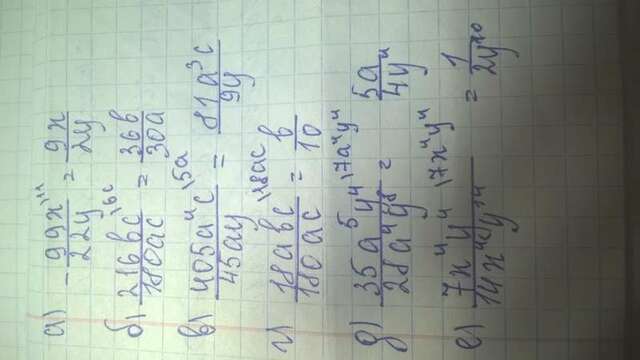 а) - 99x / 22y |11 = 9x / 2y
б) 216bc / 180ac |6c = 36b / 30a
в) 405a⁴c / 45ay |5a = 81a³c / 9y
г) 18abc / 180ac |18ac = b / 10
д) 35a⁵y⁴ / 28a⁴y⁸ |7a⁴y⁴ = 5a / 4y⁴
е) 7x⁴y⁴ / 14x⁴y¹⁴ |7x⁴y⁴ = 1 / 2y¹⁰